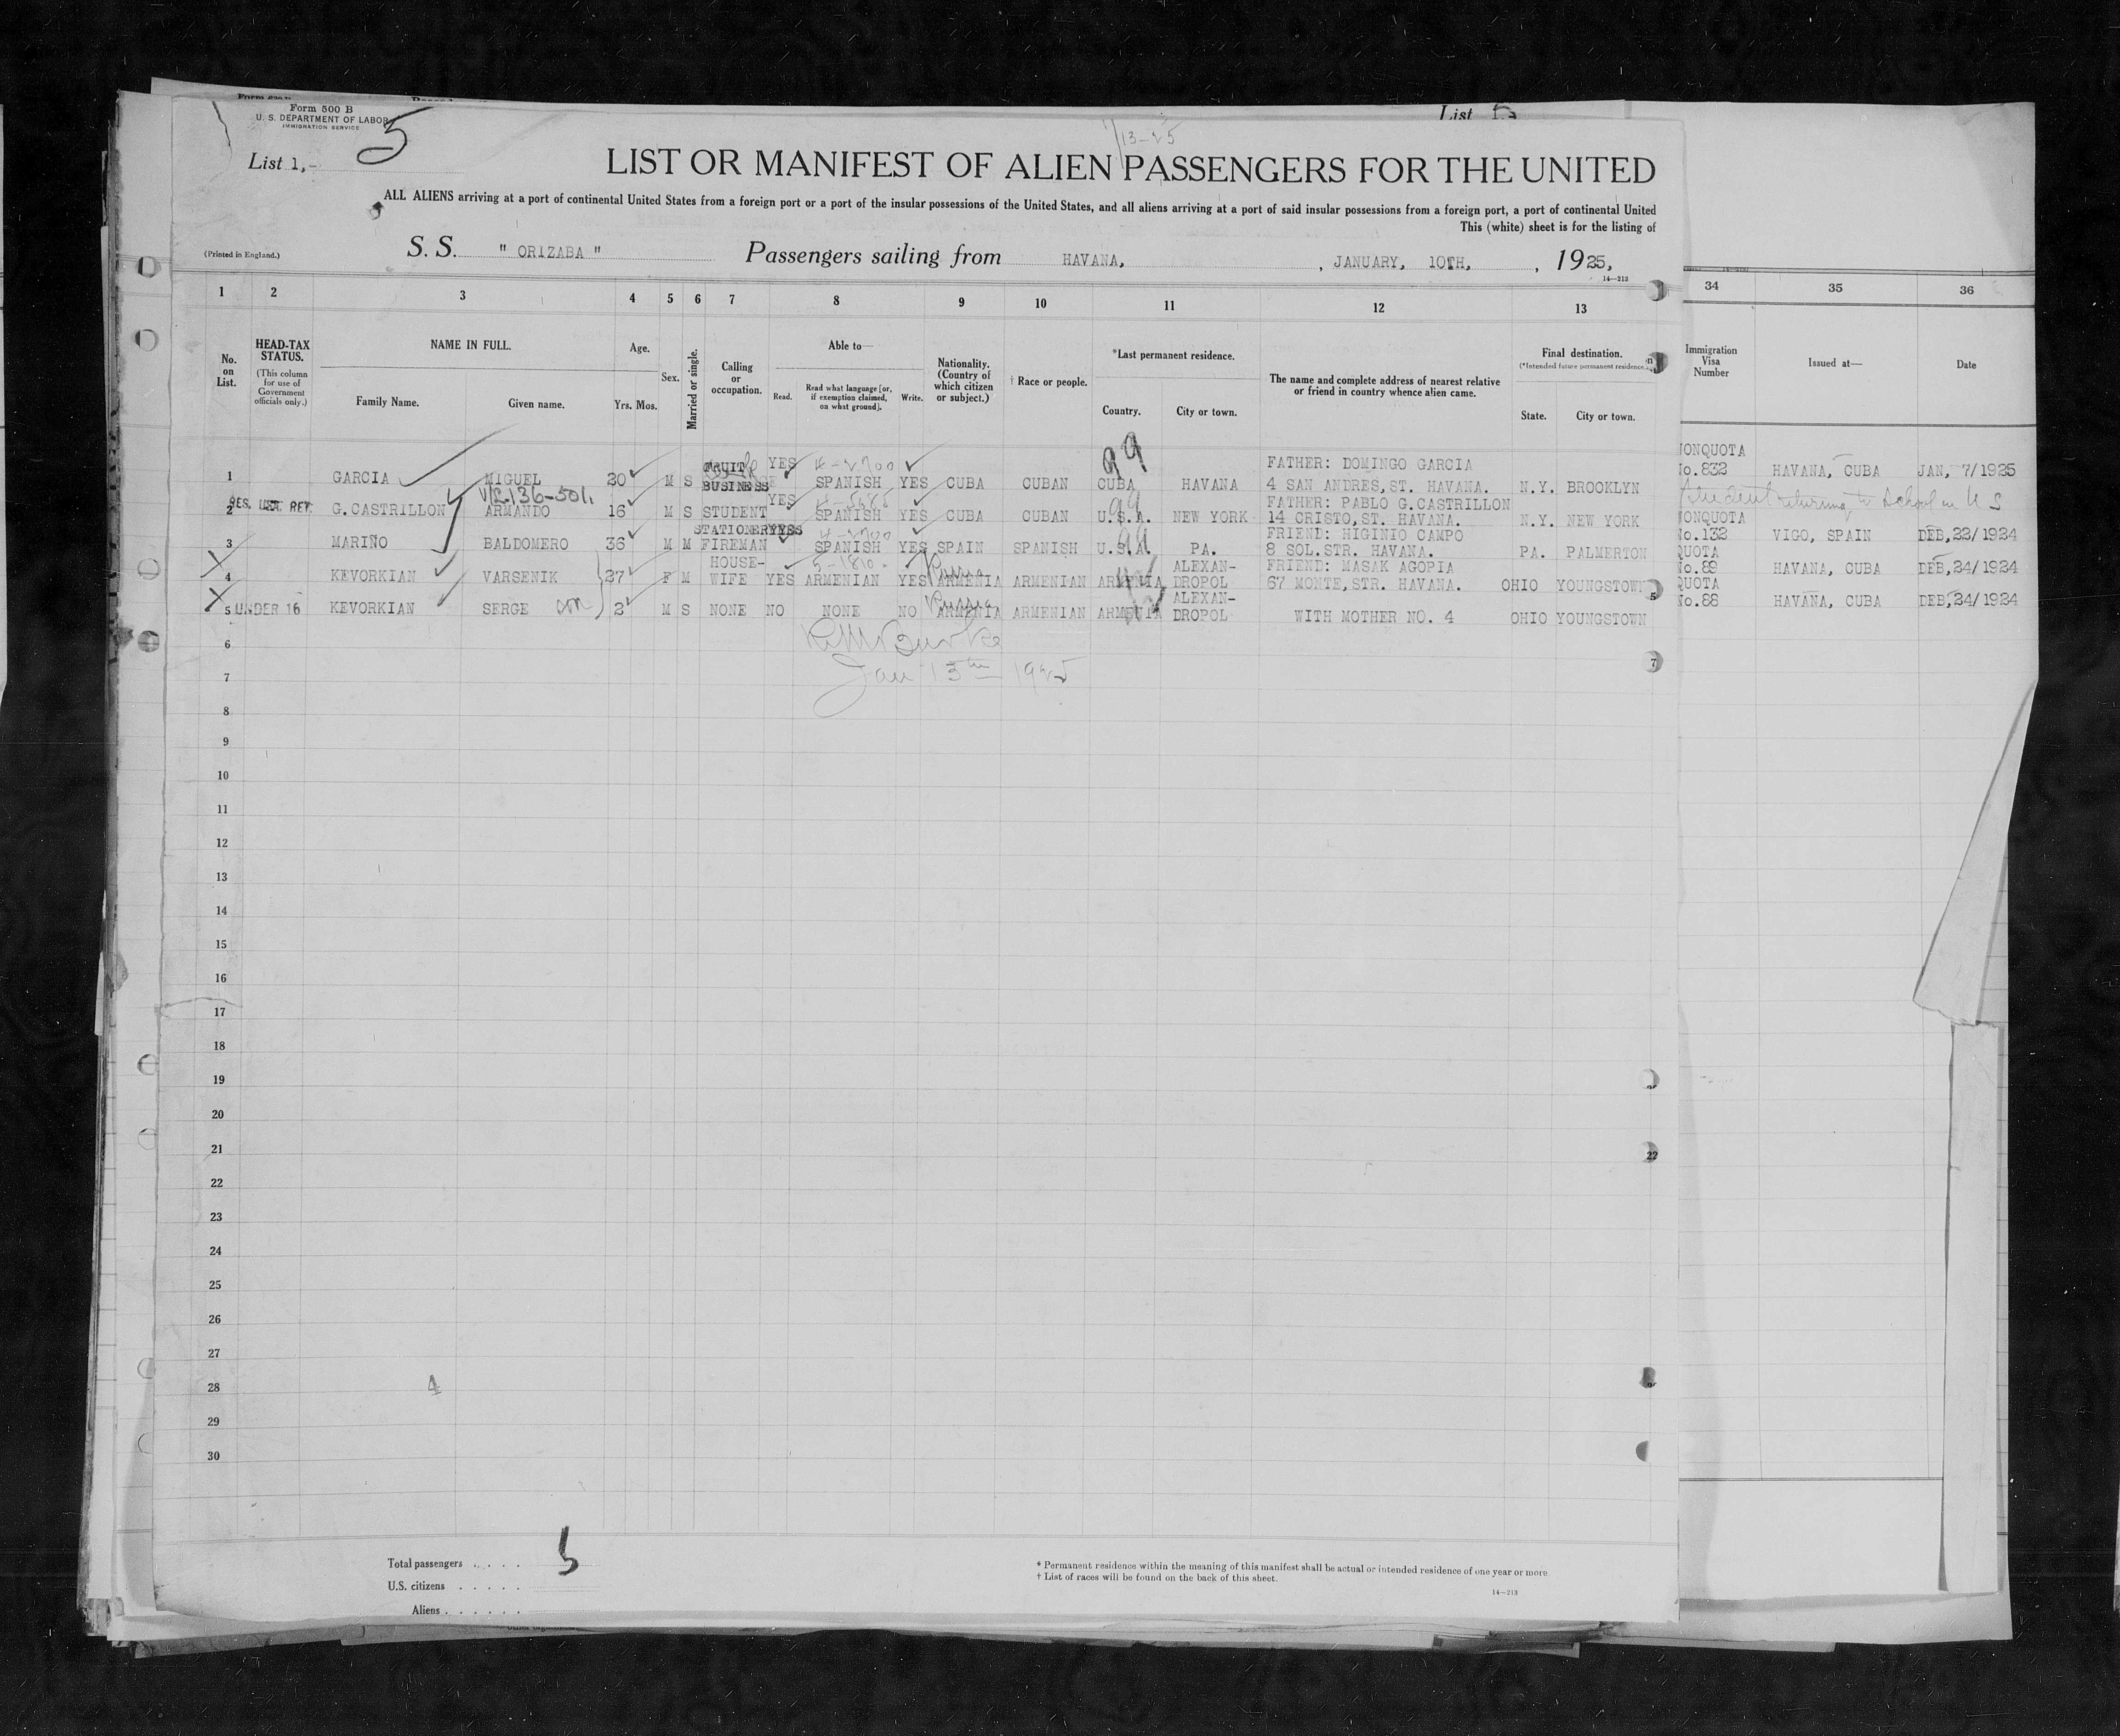 Form 500 B
U. S. DEPARTMENT OF LABOR
IMMIGRATION SERVICE
5
List 5
1/13-25
List 1,-
LIST OR MANIFEST OF ALIEN PASSENGERS FOR THE UNITED
ALL ALIENS arriving at a port of continental United States from a foreign port or a port of the insular possessions of the United States, and all aliens arriving at a port of said insular possessions from a foreign port, a port of continental United
This (white) sheet is for the listing of
(Printed in England.)
S. S. " ORIZABA " Passengers sailing from HAVANA, , JANUARY, 10TH, , 1925,
14—213
1 2 3 4 5 6 7 8 9 10 11 12 13 34 35 36
No. on List.
HEAD-TAX STATUS.
(This column for use of Government officials only.)
NAME IN FULL.
Family Name. Given name.
Age.
Yrs. Mos.
Sex.
Married or single.
Calling or occupation.
Able to—
Read. Read what language [or, if exemption claimed, on what ground]. Write.
Nationality. (Country of which citizen or subject.)
† Race or people.
*Last permanent residence.
Country. City or town.
The name and complete address of nearest relative or friend in country whence alien came.
Final destination.
(*Intended future permanent residence.)
State. City or town.
Immigration Visa Number
Issued at—
Date
99
1 GARCIA MIGUEL 20 M S FRUIT BUSINESS YES 4-2700 SPANISH YES CUBA CUBAN CUBA HAVANA FATHER: DOMINGO GARCIA 4 SAN ANDRES,ST. HAVANA. N.Y. BROOKLYN NONQUOTA No.832 HAVANA, CUBA JAN, 7/1925
2 G.CASTRILLON ARMANDO 16 M S STUDENT YES SPANISH YES CUBA CUBAN U.S.A. NEW YORK FATHER: PABLO G.CASTRILLON 14 CRISTO,ST. HAVANA. N.Y. NEW YORK Student returning to School in U S
3 MARIÑO BALDOMERO 36 M M STATIONERY FIREMAN YES 4-2700 SPANISH YES SPAIN SPANISH U.S.A. PA. FRIEND: HIGINIO CAMPO 8 SOL.STR. HAVANA. PA. PALMERTON NONQUOTA No.132 VIGO, SPAIN DEB,22/1924
X 4 KEVORKIAN VARSENIK 27 F M HOUSE-WIFE YES 5-1810 ARMENIAN YES Russia ARMENIA ARMENIAN ARMENIA ALEXAN-DROPOL FRIEND: MASAK AGOPIA 67 MONTE,STR. HAVANA. OHIO YOUNGSTOWN QUOTA No.89 HAVANA, CUBA DEB,24/1924
X 5 UNDER 16 KEVORKIAN SERGE son 2 M S NONE NO NONE NO Russia ARMENIA ARMENIAN ARMENIA ALEXAN-DROPOL WITH MOTHER NO. 4 OHIO YOUNGSTOWN QUOTA No.88 HAVANA, CUBA DEB,24/1924
6
Jan 13th 1925
7
8
9
10
11
12
13
14
15
16
17
18
19
20
21
22
23
24
25
26
27
28 4
29
30
Total passengers . . . . 5
U.S. citizens . . . . .
Aliens . . . . . .
* Permanent residence within the meaning of this manifest shall be actual or intended residence of one year or more
† List of races will be found on the back of this sheet.
14—213